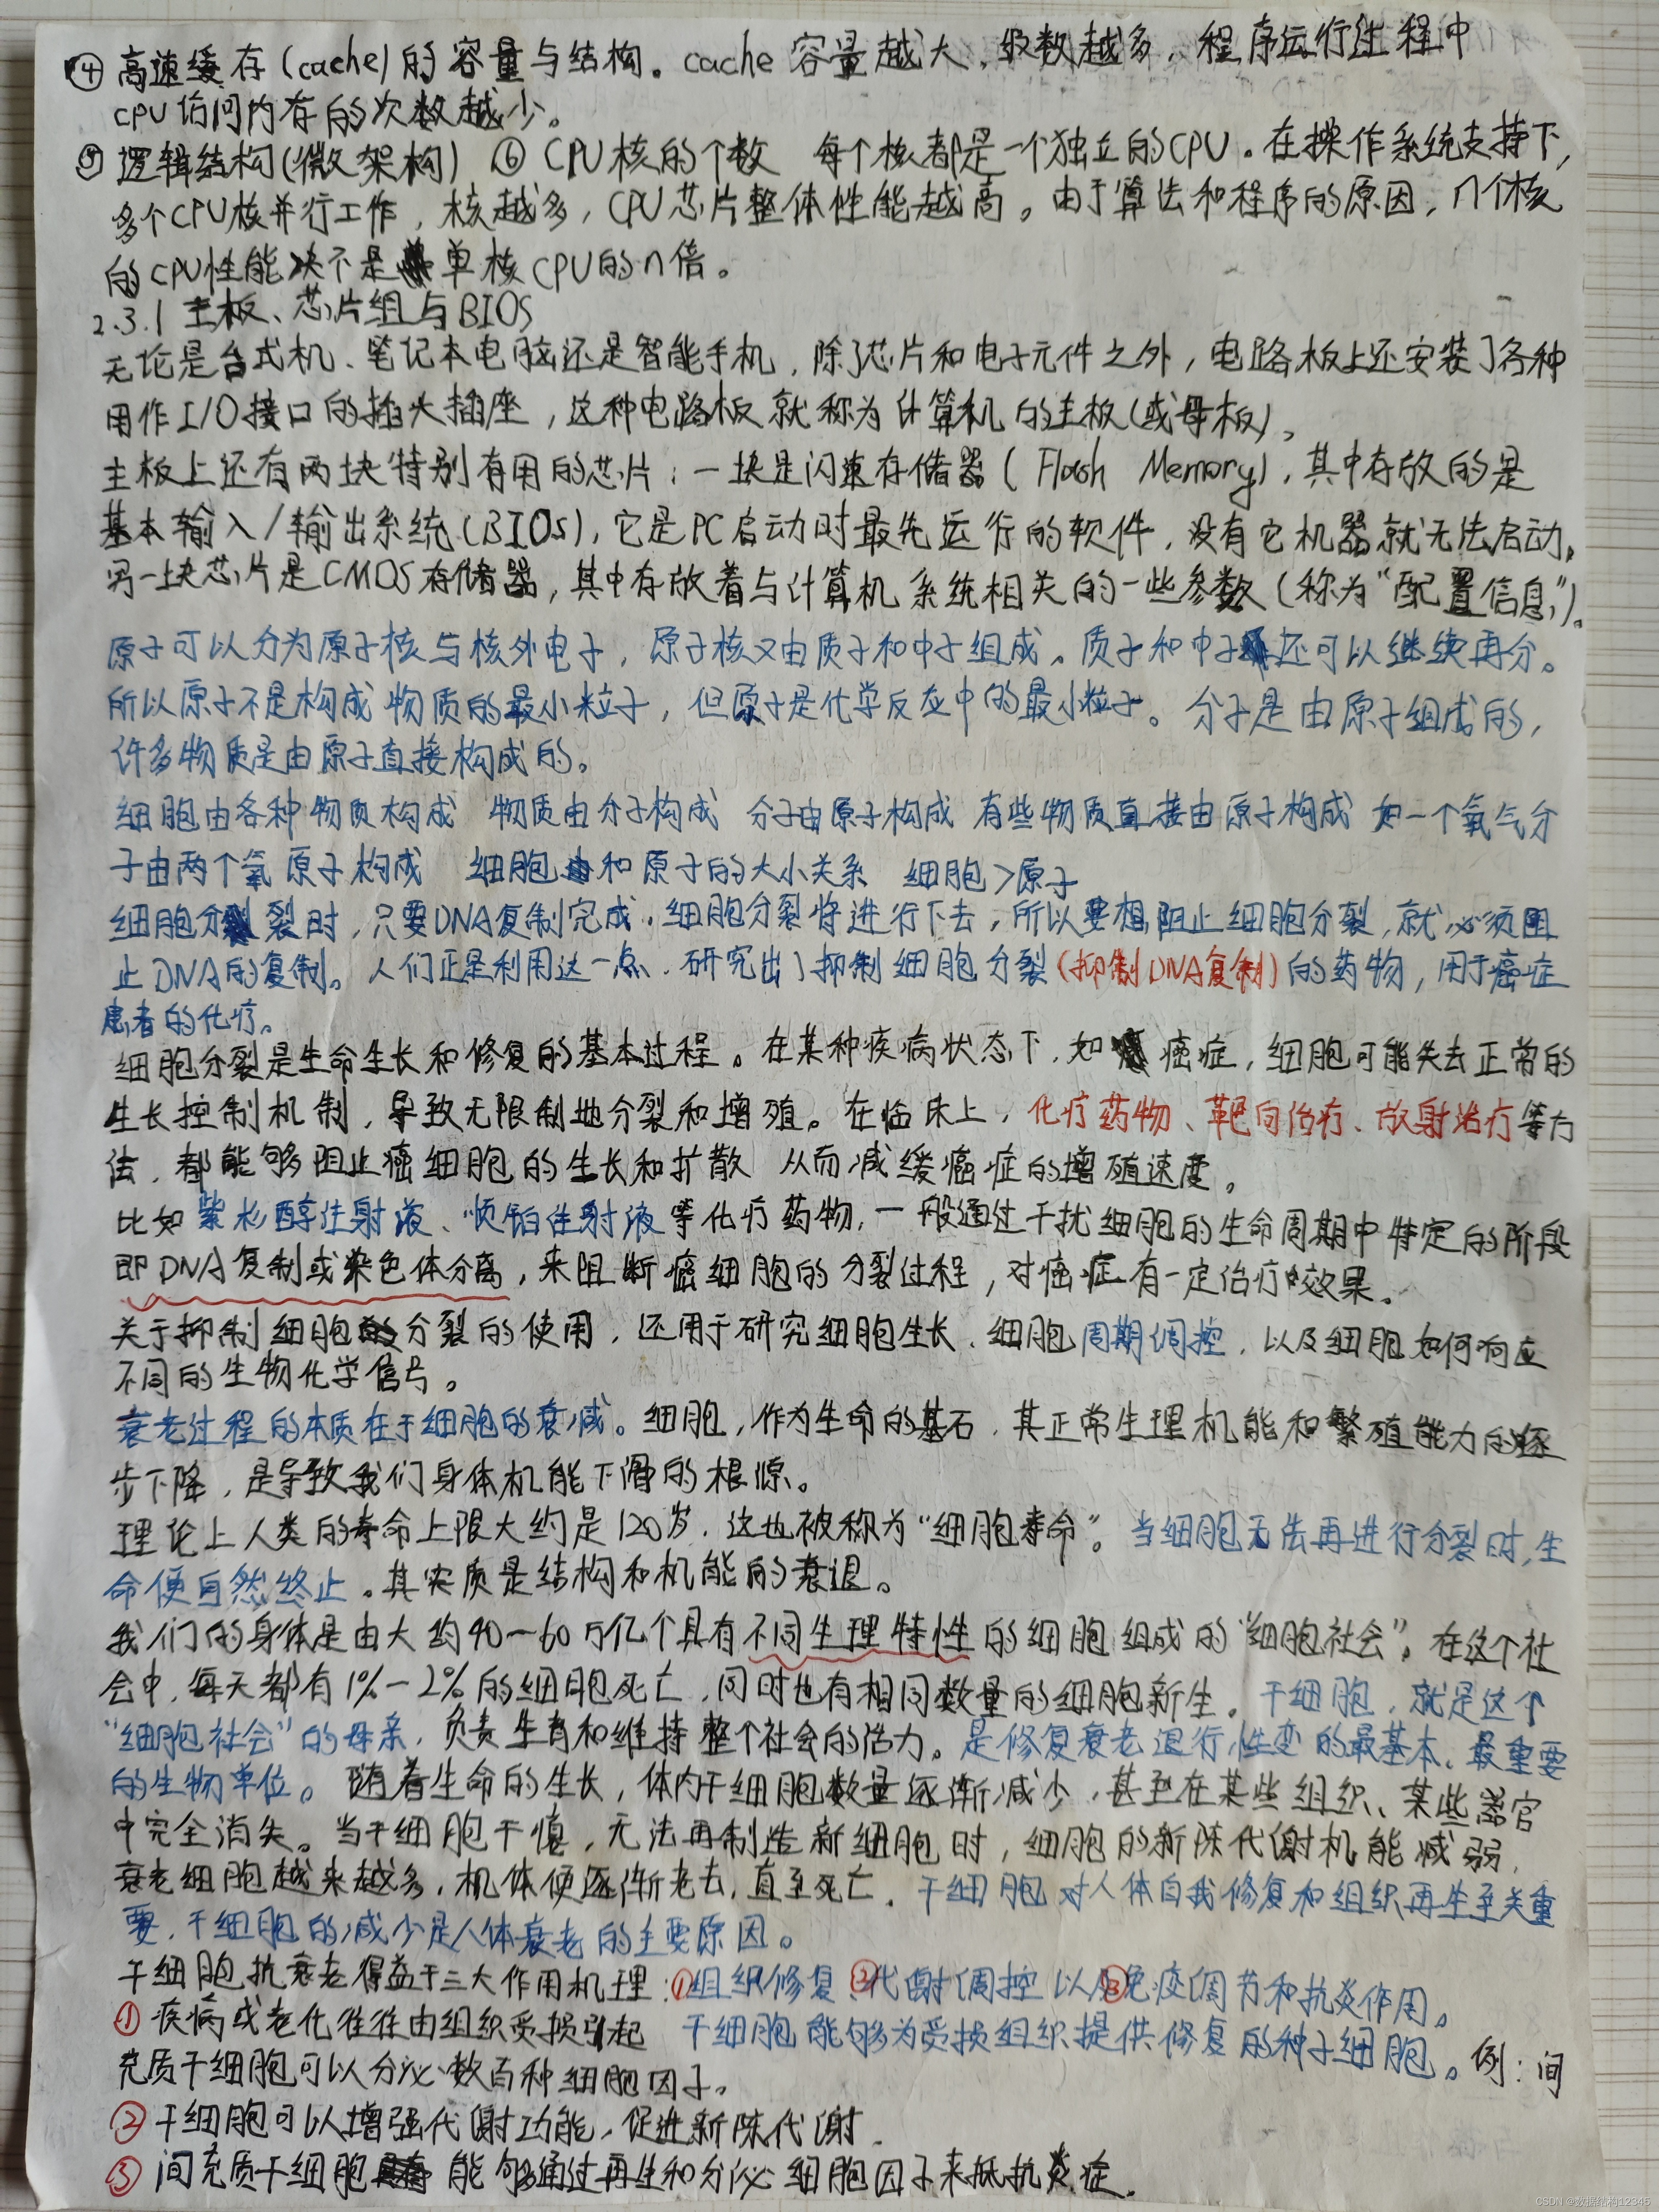 ④ 高速缓存(cache)的容量与结构。cache 容量越大、级数越多,程序运行过程中
CPU访问内存的次数越少。
⑤ 逻辑结构(微架构) ⑥ CPU核的个数 每个核都是一个独立的CPU。在操作系统支持下,
多个CPU核并行工作,核越多,CPU芯片整体性能越高。由于算法和程序的原因,n个核
的CPU性能决不是单核CPU的n倍。
2.3.1 主板、芯片组与BIOS
无论是台式机、笔记本电脑还是智能手机,除了芯片和电子元件之外,电路板上还安装了各种
用作I/O接口的插头插座,这种电路板就称为计算机的主板(或母板)。
主板上还有两块特别有用的芯片:一块是闪速存储器(Flash Memory),其中存放的是
基本输入/输出系统(BIOS),它是PC启动时最先运行的软件,没有它机器就无法启动。
另一块芯片是CMOS存储器,其中存放着与计算机系统相关的一些参数(称为“配置信息”)。
原子可以分为原子核与核外电子,原子核又由质子和中子组成。质子和中子还可以继续再分。
所以原子不是构成物质的最小粒子,但原子是化学反应中的最小粒子。分子是由原子组成的,
许多物质是由原子直接构成的。
细胞由各种物质构成 物质由分子构成 分子由原子构成 有些物质直接由原子构成 如一个氧气分
子由两个氧原子构成 细胞和原子的大小关系 细胞>原子
细胞分裂时,只要DNA复制完成,细胞分裂将进行下去,所以要想阻止细胞分裂,就必须阻
止DNA的复制。人们正是利用这一点,研究出了抑制细胞分裂(抑制DNA复制)的药物,用于癌症
患者的化疗。
细胞分裂是生命生长和修复的基本过程。在某种疾病状态下,如癌症,细胞可能失去正常的
生长控制机制,导致无限制地分裂和增殖。在临床上,化疗药物、靶向治疗、放射治疗等方
法,都能够阻止癌细胞的生长和扩散 从而减缓癌症的增殖速度。
比如紫杉醇注射液、顺铂注射液等化疗药物,一般通过干扰细胞的生命周期中特定的阶段
即DNA复制或染色体分离,来阻断癌细胞的分裂过程,对癌症有一定治疗效果。
关于抑制细胞分裂的使用,还用于研究细胞生长、细胞周期调控,以及细胞如何响应
不同的生物化学信号。
衰老过程的本质在于细胞的衰减。细胞,作为生命的基石,其正常生理机能和繁殖能力的逐
步下降,是导致我们身体机能下滑的根源。
理论上人类的寿命上限大约是120岁,这也被称为“细胞寿命”。当细胞无法再进行分裂时,生
命便自然终止。其实质是结构和机能的衰退。
我们的身体是由大约40—60万亿个具有不同生理特性的细胞组成的“细胞社会”。在这个社
会中,每天都有1%—2%的细胞死亡,同时也有相同数量的细胞新生。干细胞,就是这个
“细胞社会”的母亲,负责生育和维持整个社会的活力。是修复衰老退行性变的最基本、最重要
的生物单位。随着生命的生长,体内干细胞数量逐渐减少,甚至在某些组织、某些器官
中完全消失。当干细胞干慎,无法再制造新细胞时,细胞的新陈代谢机能减弱,
衰老细胞越来越多,机体便逐渐老去,直至死亡。干细胞对人体自我修复和组织再生至关重
要,干细胞的减少是人体衰老的主要原因。
干细胞抗衰老得益于三大作用机理:①组织修复、②代谢调控以及③免疫调节和抗炎作用。
① 疾病或老化往往由组织受损引起 干细胞能够为受损组织提供修复的种子细胞。例:间
充质干细胞可以分泌数百种细胞因子。
② 干细胞可以增强代谢功能,促进新陈代谢.
③ 间充质干细胞能够通过再生和分泌细胞因子来抵抗炎症.
CSDN @数据结构12345